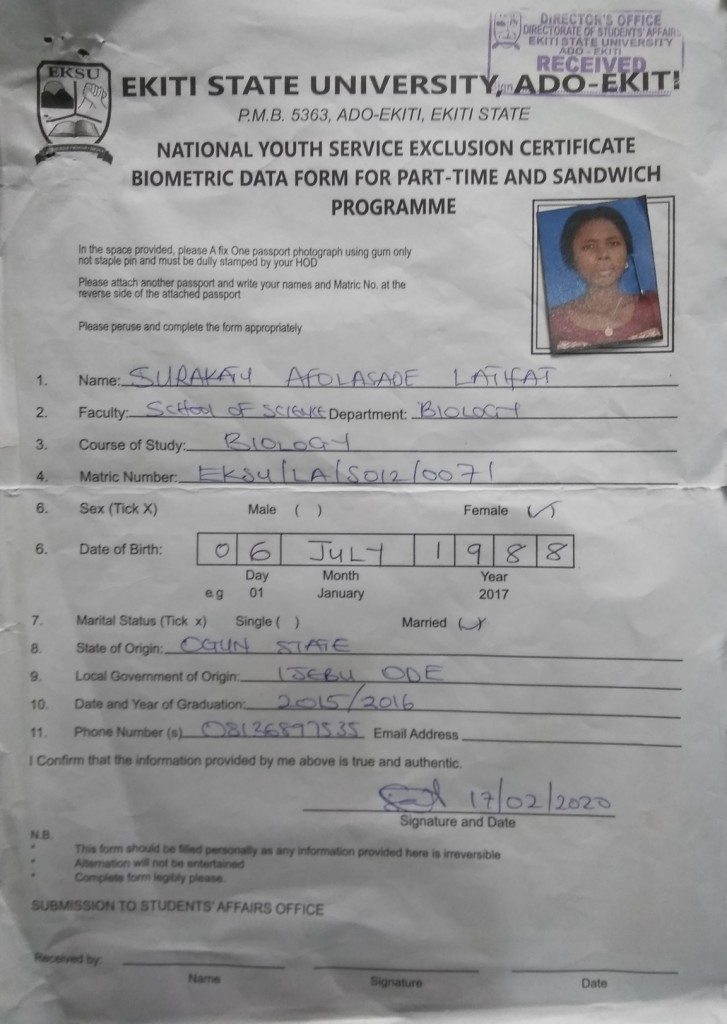 DIRECTOR'S OFFICE
DIRECTORATE OF STUDENTS' AFFAIRS
EKITI STATE UNIVERSITY
ADO - EKITI
RECEIVED
EKSU
EKITI STATE UNIVERSITY, ADO-EKITI
P.M.B. 5363, ADO-EKITI, EKITI STATE
NATIONAL YOUTH SERVICE EXCLUSION CERTIFICATE
BIOMETRIC DATA FORM FOR PART-TIME AND SANDWICH
PROGRAMME
In the space provided, please A fix One passport photograph using gum only
not staple pin and must be dully stamped by your HOD
Please attach another passport and write your names and Matric No. at the
reverse side of the attached passport
Please peruse and complete the form appropriately
1. Name: SURAKATU AFOLASADE LATIFAT
2. Faculty: SCHOOL OF SCIENCE Department: BIOLOGY
3. Course of Study: BIOLOGY
4. Matric Number: EKSU/LA/S012/0071
6. Sex (Tick X) Male ( ) Female (✓)
6. Date of Birth: 06 JULY 1988
Day Month Year
e g 01 January 2017
7. Marital Status (Tick x) Single ( ) Married (✓)
8. State of Origin: OGUN STATE
9. Local Government of Origin: IJEBU ODE
10. Date and Year of Graduation: 2015/2016
11. Phone Number (s) 08136897535 Email Address
I Confirm that the information provided by me above is true and authentic.
17/02/2020
Signature and Date
N.B.
* This form should be filled personally as any information provided here is irreversible
* Alternation will not be entertained
* Complete form legibly please.
SUBMISSION TO STUDENTS' AFFAIRS OFFICE
Received by:
Name Signature Date